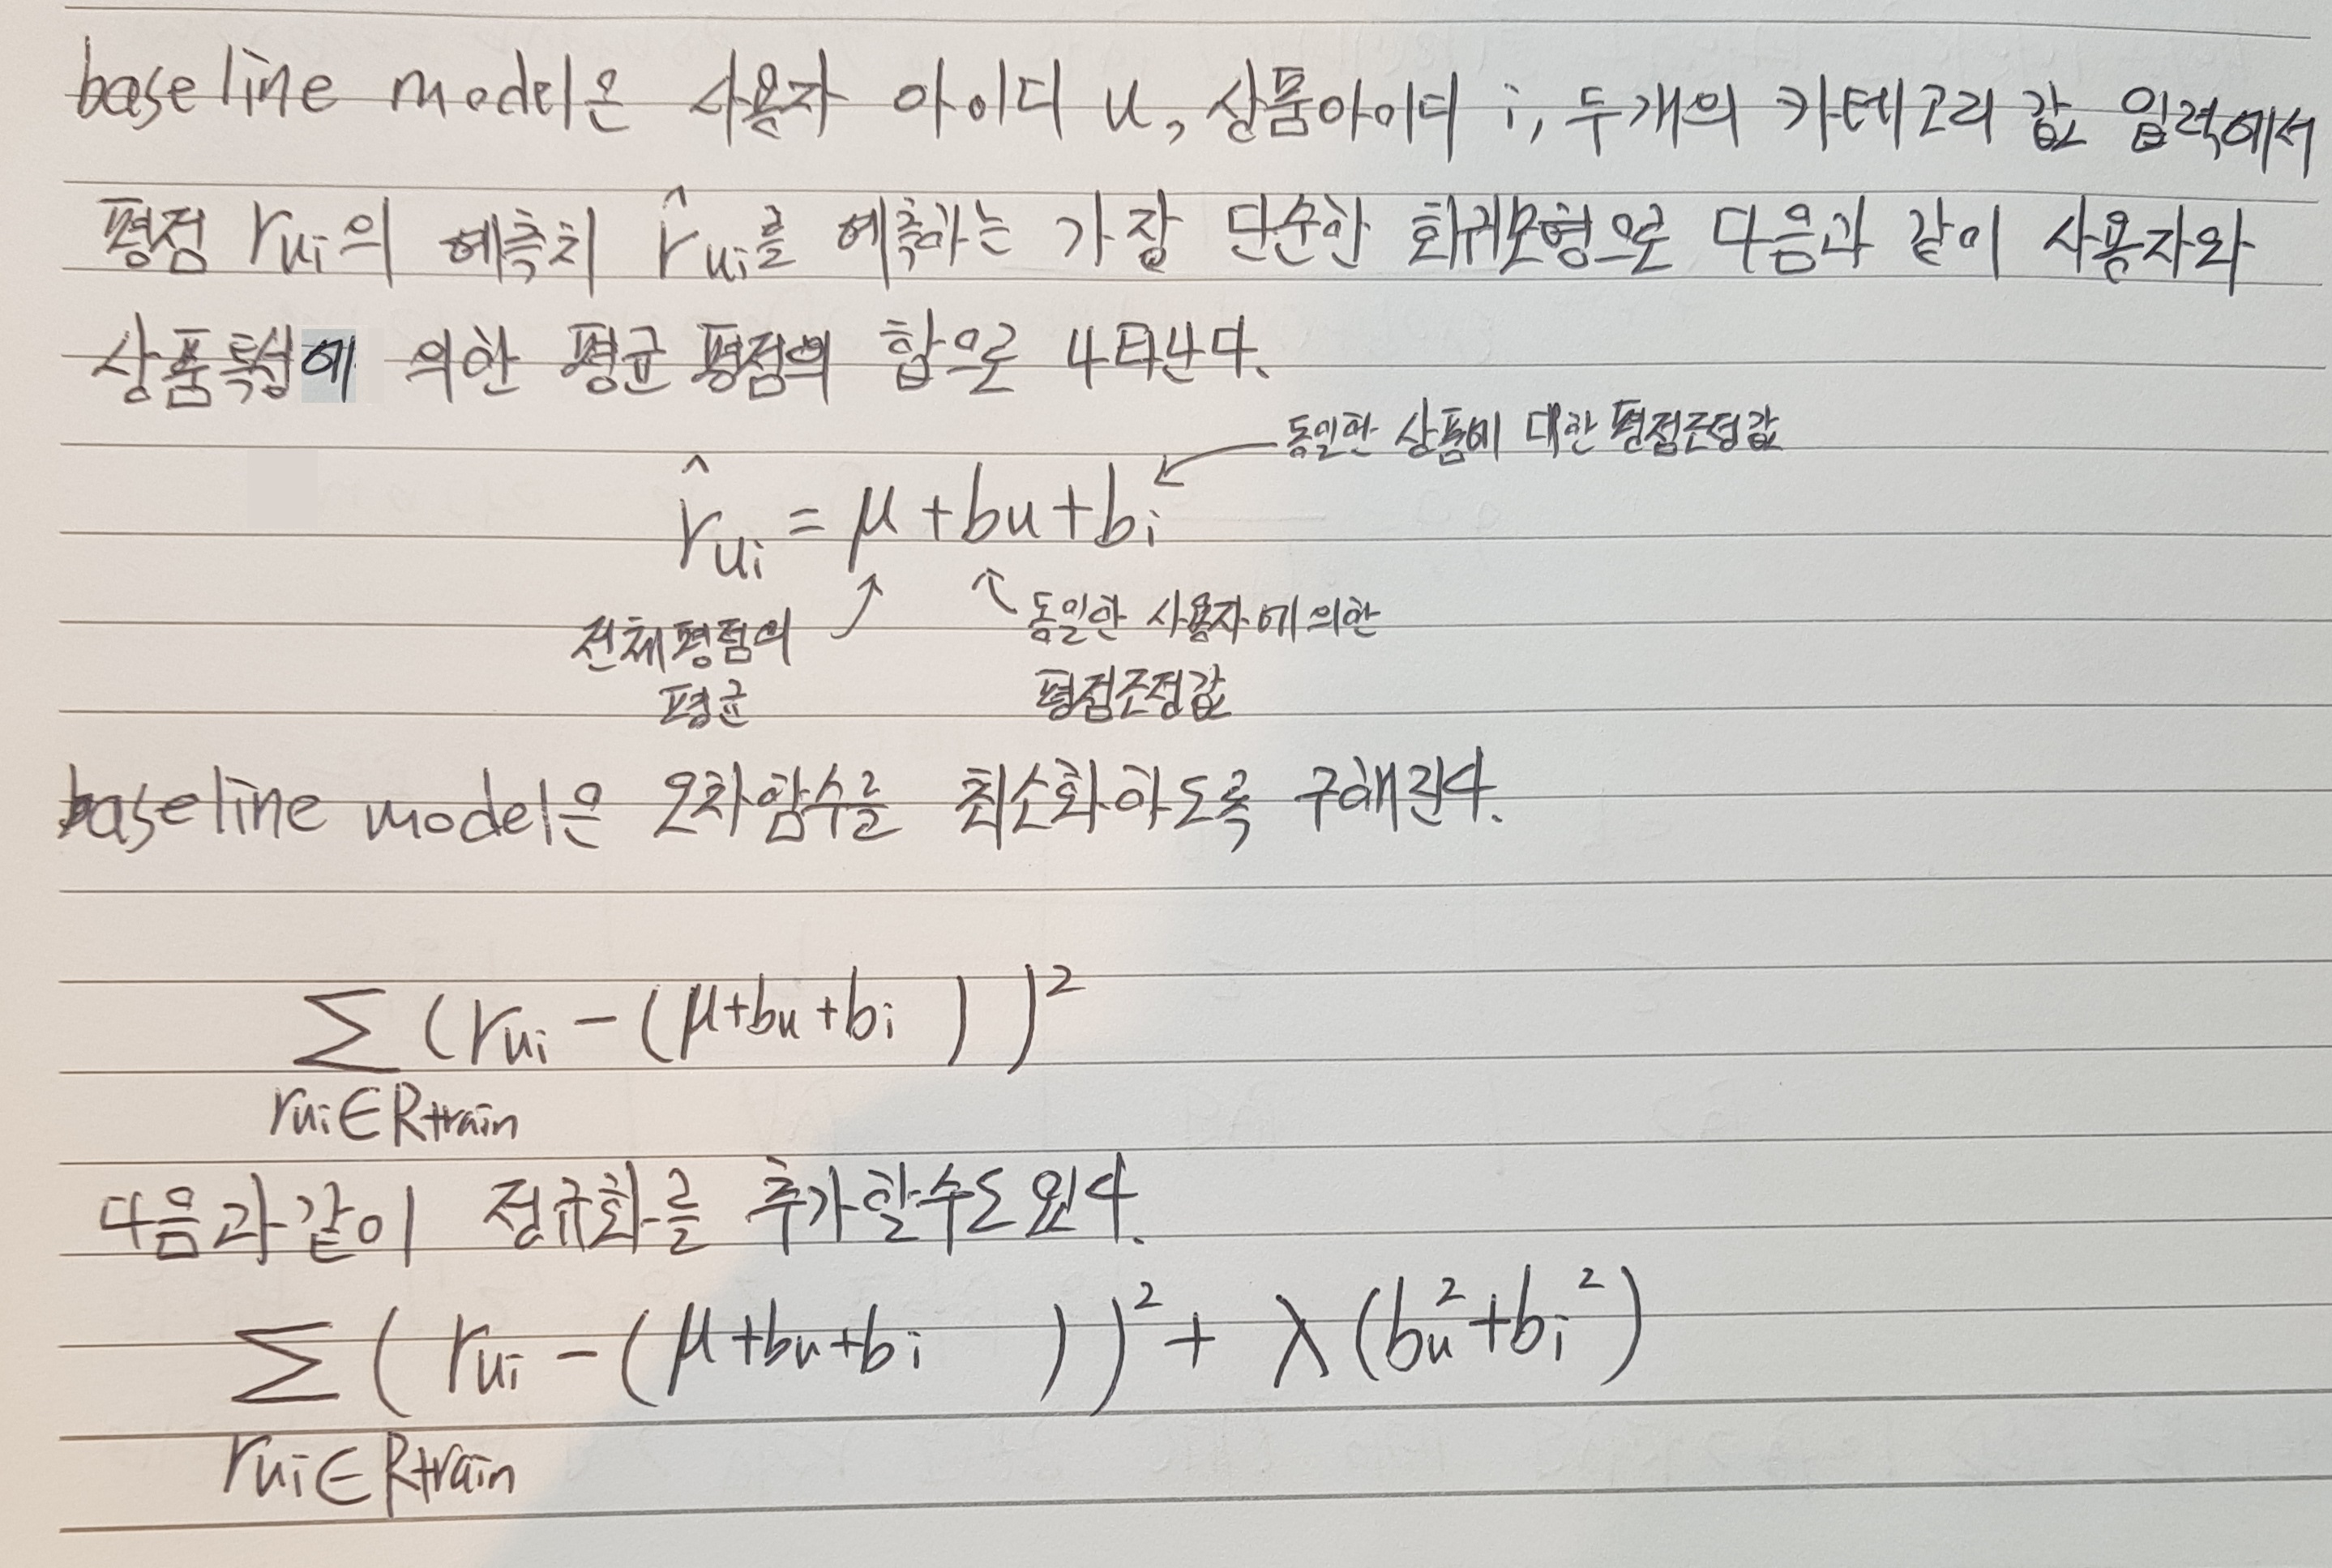 baseline model은 사용자 아이디 u, 상품아이디 i, 두개의 카테고리 값 입력에서
평점 rui의 예측치 r̂ui를 예측하는 가장 단순한 회귀모형으로 다음과 같이 사용자와
상품특성에 의한 평균 평점의 합으로 나타난다.
동일한 상품에 대한 평점조정값
r̂ui = μ + bu + bi
전체평점의
평균
동일한 사용자에 의한
평점조정값
baseline model은 오차함수를 최소화하도록 구해진다.
∑ (rui − (μ+bu+bi))²
rui∈Rtrain
다음과 같이 정규화를 추가할수도 있다.
∑ (rui − (μ+bu+bi))² + λ(bu²+bi²)
rui∈Rtrain